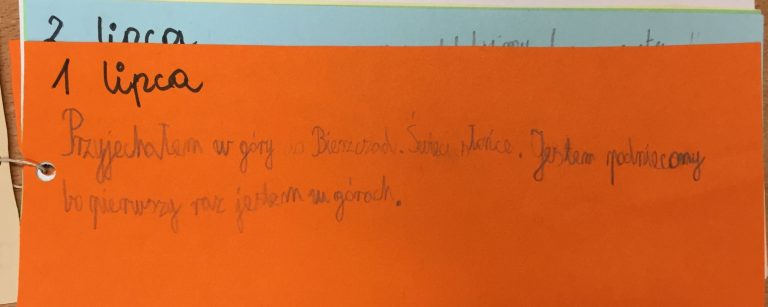 2 lipca
1 lipca
Przyjechałem w góry do Bieszczad. Świeci słońce. Jestem podniecony
bo pierwszy raz jestem w górach.